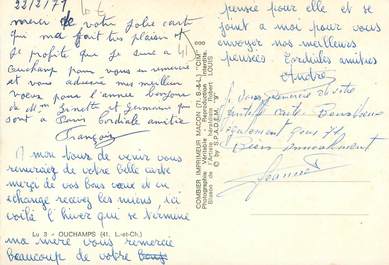 22/2/71
merci de votre jolie carte
qui ma fait très plaisir et
je profite que je suis a
Ouchamps pour vous en remercier
et vous adresse mes meilleurs
voeux pour l'année bonjour
de Mme Ginette et germaine qui
sont a Paris Cordiale amitié
François
A mon tour de venir vous
remercier de votre belle carte
merci de vos bons voeux et en
échange recevez les miens ici
voilà l'hiver qui se termine
Lu 3 - OUCHAMPS (41. L.-et-Ch.)
ma mère vous remercie
beaucoup de votre
COMBIER IMPRIMEUR MACON (S.-&-L.) "CIM"
Photographie Véritable - Reproduction Interdite.
Blason de l'Artiste héraldiste Robert LOUIS
© by S.P.A.D.E.M.
pensée pour elle et se
joint a moi pour vous
envoyer nos meilleurs
pensées. Cordiales amitiés
André
Je vous remercie de votre
gentille carte. Bonne
également pour 71
Bien amicalement
Jeanne